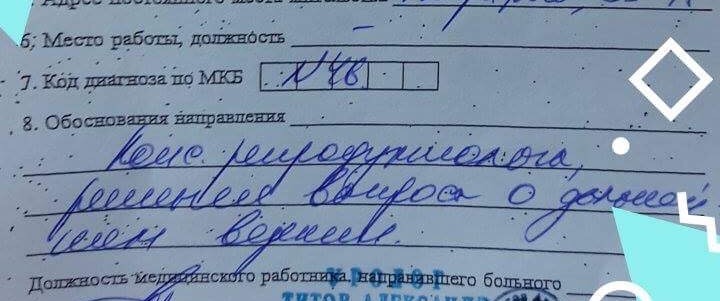 Адрес постоянного места жительства
6. Место работы, должность –
7. Код диагноза по МКБ N46
8. Обоснования направления
Конс. репродуктолога,
решения вопроса о дальней
шем ведении.
Должность медицинского работника, направившего больного
УРОЛОГ
ТИТОВ АЛЕКСАНДР